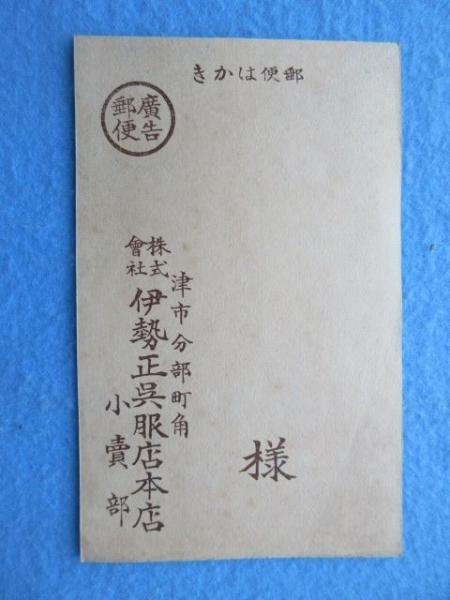 郵便はかき
廣告
郵便
様
津市分部町角
株式
會社
伊勢正呉服店本店
小賣部